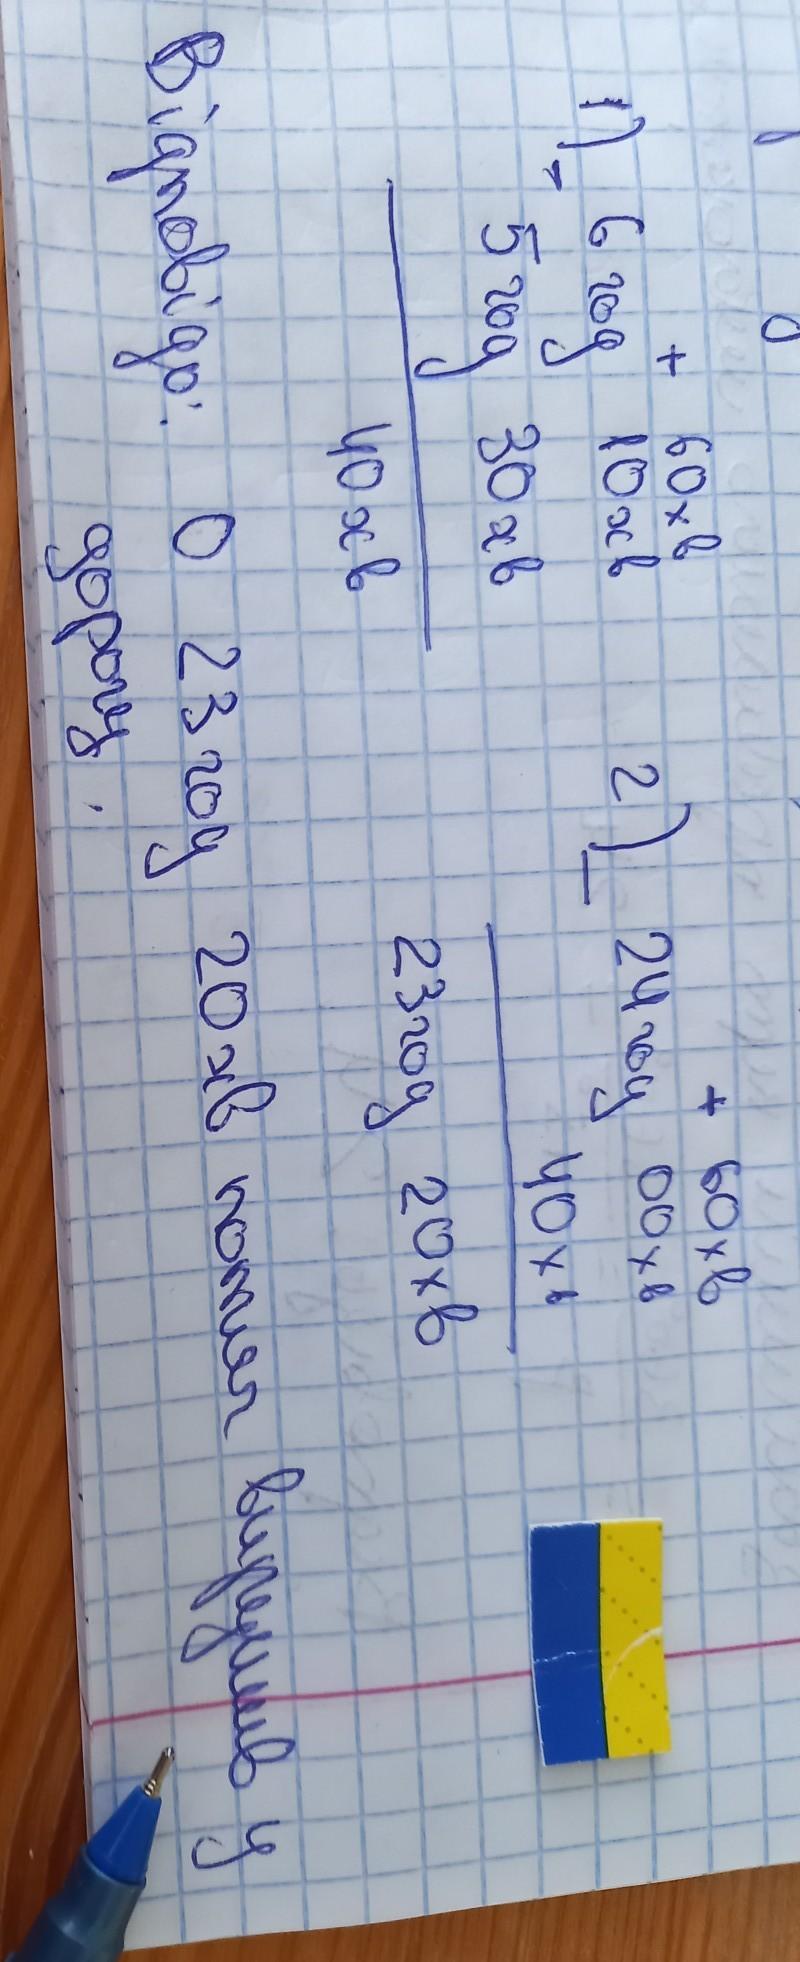 + 60хв
1) - 6 год 10хв
5 год 30хв
40хв
+ 60хв
2) - 24год 00хв
40хв
23год 20хв
Відповідь: О 23год 20хв потяг вирушив у
дорогу.